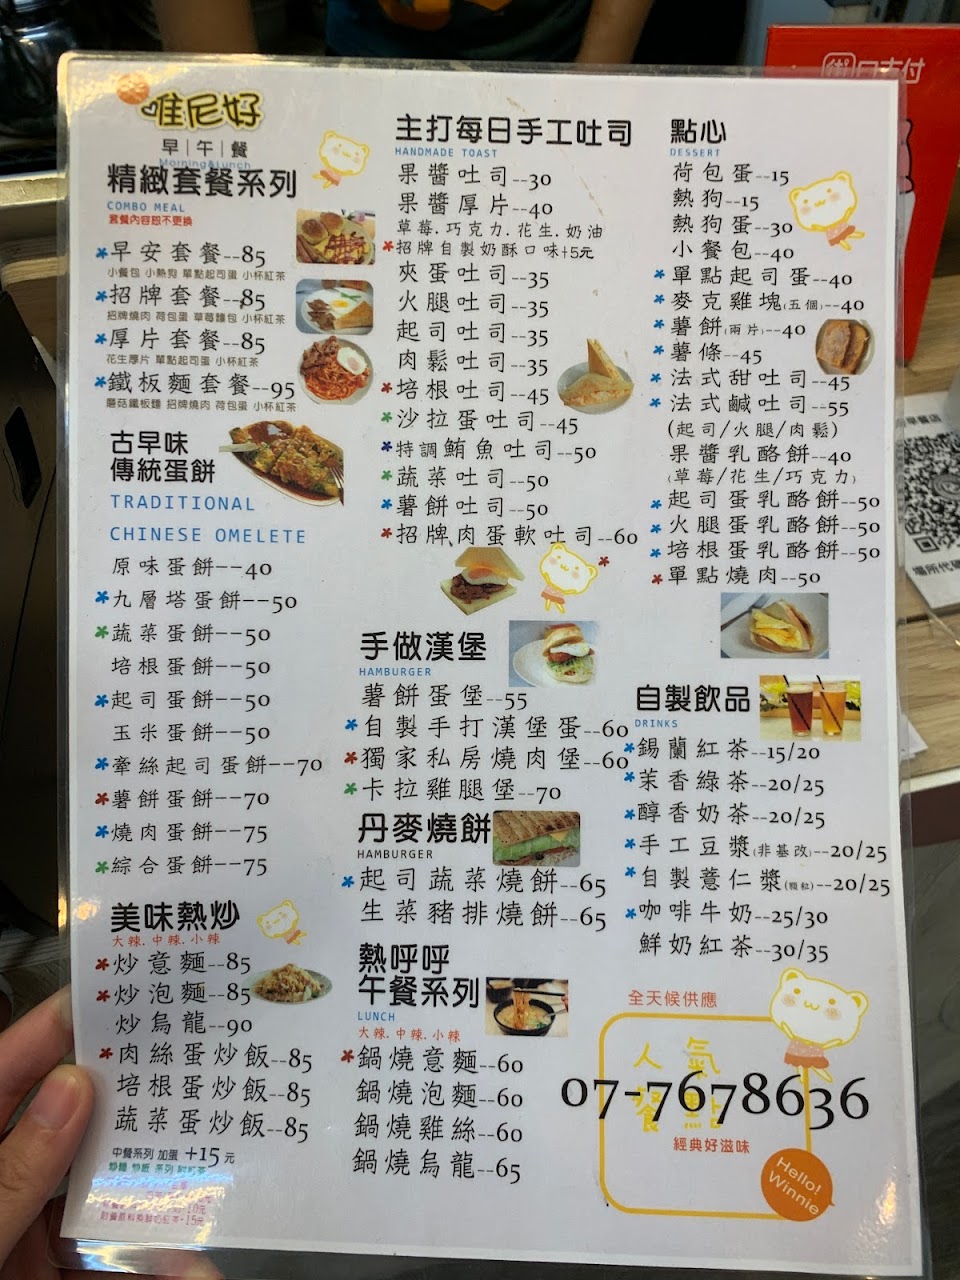 唯尼好
早|午|餐
Morning&Lunch
精緻套餐系列
COMBO MEAL
套餐內容恕不更換
*早安套餐--85
小餐包 小熱狗 單點起司蛋 小杯紅茶
*招牌套餐--85
招牌燒肉 荷包蛋 草莓麵包 小杯紅茶
*厚片套餐--85
花生厚片 單點起司蛋 小杯紅茶
*鐵板麵套餐--95
蘑菇鐵板麵 招牌燒肉 荷包蛋 小杯紅茶
古早味
傳統蛋餅
TRADITIONAL
CHINESE OMELETE
原味蛋餅--40
*九層塔蛋餅--50
*蔬菜蛋餅--50
培根蛋餅--50
*起司蛋餅--50
玉米蛋餅--50
*牽絲起司蛋餅--70
*薯餅蛋餅--70
*燒肉蛋餅--75
*綜合蛋餅--75
美味熱炒
大辣.中辣.小辣
*炒意麵--85
*炒泡麵--85
炒烏龍--90
*肉絲蛋炒飯--85
培根蛋炒飯--85
蔬菜蛋炒飯--85
中餐系列 加蛋 +15元
主打每日手工吐司
HANDMADE TOAST
果醬吐司--30
果醬厚片--40
草莓.巧克力.花生.奶油
*招牌自製奶酥口味+5元
夾蛋吐司--35
火腿吐司--35
起司吐司--35
肉鬆吐司--35
*培根吐司--45
*沙拉蛋吐司--45
*特調鮪魚吐司--50
*蔬菜吐司--50
*薯餅吐司--50
*招牌肉蛋軟吐司--60
手做漢堡
HAMBURGER
薯餅蛋堡--55
*自製手打漢堡蛋--60
*獨家私房燒肉堡--60
*卡拉雞腿堡--70
丹麥燒餅
HAMBURGER
*起司蔬菜燒餅--65
生菜豬排燒餅--65
熱呼呼
午餐系列
LUNCH
大辣.中辣.小辣
*鍋燒意麵--60
鍋燒泡麵--60
鍋燒雞絲--60
鍋燒烏龍--65
點心
DESSERT
荷包蛋--15
熱狗--15
熱狗蛋--30
小餐包--40
*單點起司蛋--40
*麥克雞塊(五個)--40
*薯餅(兩片)--40
*薯條--45
*法式甜吐司--45
*法式鹹吐司--55
(起司/火腿/肉鬆)
果醬乳酪餅--40
(草莓/花生/巧克力)
*起司蛋乳酪餅--50
*火腿蛋乳酪餅--50
*培根蛋乳酪餅--50
*單點燒肉--50
自製飲品
DRINKS
*錫蘭紅茶--15/20
*茉香綠茶--20/25
*醇香奶茶--20/25
*手工豆漿(非基改)--20/25
*自製薏仁漿(顆粒)--20/25
*咖啡牛奶--25/30
鮮奶紅茶--30/35
全天候供應
人氣
餐點
07-7678636
經典好滋味
Hello!
Winnie
街口支付